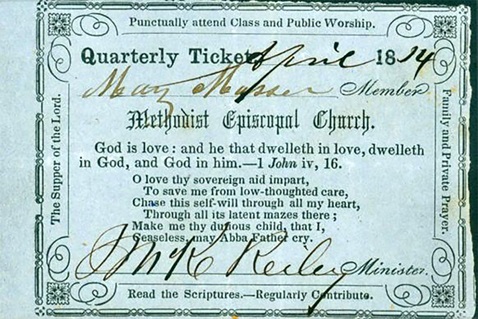 Punctually attend Class and Public Worship.
Quarterly Ticket April 18
Mary Member
Methodist Episcopal Church.
God is love: and he that dwelleth in love, dwelleth
in God, and God in him.—1 John iv, 16.
O love thy sovereign aid impart,
To save me from low-thoughted care,
Chase this self-will through all my heart,
Through all its latent mazes there;
Make me thy duteous child, that I,
Ceaseless, may Abba Father cry.
Minister.
Read the Scriptures.—Regularly Contribute.
The Supper of the Lord.
Family and Private Prayer.